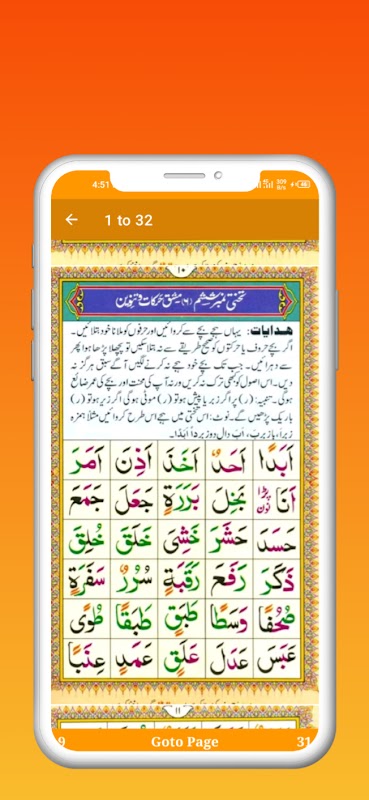 4:51
1 to 32
۱۰
تختی نمبر ششم (۶) مشق حرکات و تنوین
ہدایات: یہاں ہجے بچے سے کروائیں اور حرفوں کو ملانا خود بتلائیں۔
اگر بچے حروف یا حرکتوں کو صحیح طریقے سے نہ بتلا سکیں تو پچھلا پڑھا ہوا پھر
سے دہرائیں۔ جب تک بچے خود ہجے نہ کرنے لگیں آگے سبق ہرگز نہ
دیں۔ اس اصول کو کبھی ترک نہ کریں ورنہ آپ کی محنت اور بچے کی عمر ضائع
ہوگی۔ تنبیہ: (ر) پر اگر زبر یا پیش ہو تو (ر) موٹی ہوگی اگر زیر ہو تو (ر)
باریک پڑھیں گے۔ نوٹ: اس تختی میں ہجے اس طرح کروائیں مثلاً ہمزہ
زبر اَ، با زبر بَ، اَبَ دال دو زبر دًا اَبَدًا۔
اَبَدًا اَحَدٌ اَخَذَ اَذِنَ اَمَرَ
اَنَا پڑا نون بَخِلَ بَرَرَةٍ جَعَلَ جَمَعَ
حَسَدَ حَشَرَ خَشِيَ خَلَقَ خُلِقَ
ذَكَرَ رَفَعَ رَقَبَةٍ سُرُرٌ سَفَرَةٍ
صُحُفًا وَسَطًا طَبَقٍ طَبَقًا طُوًى
عَبَسَ عَدَلَ عَلَقٍ عَمَدٍ عِنَبًا
۱۱
9 Goto Page 31